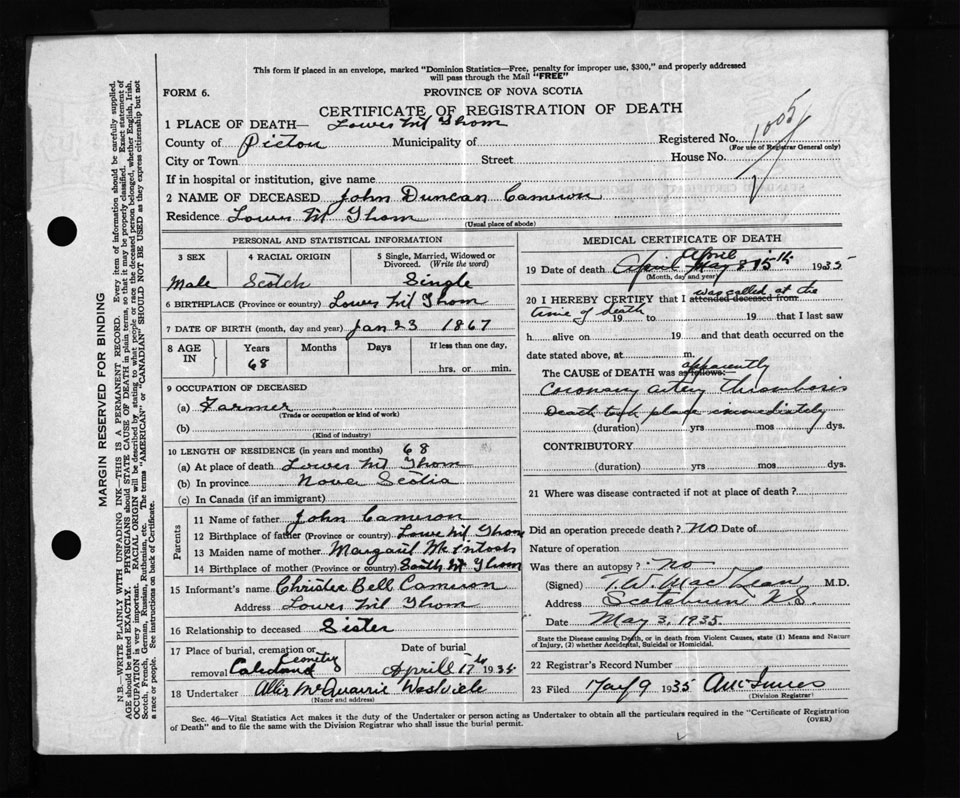 This form if placed in an envelope, marked "Dominion Statistics—Free, penalty for improper use, $300," and properly addressed
will pass through the Mail "FREE"
FORM 6.
PROVINCE OF NOVA SCOTIA
CERTIFICATE OF REGISTRATION OF DEATH
1 PLACE OF DEATH— Lower Mt Thom
Registered No. 1005
(For use of Registrar General only)
County of Pictou Municipality of
City or Town Street House No.
If in hospital or institution, give name
2 NAME OF DECEASED John Duncan Cameron
Residence Lower Mt Thom
(Usual place of abode)
PERSONAL AND STATISTICAL INFORMATION
3 SEX 4 RACIAL ORIGIN 5 Single, Married, Widowed or
Divorced. (Write the word)
Male Scotch Single
6 BIRTHPLACE (Province or country) Lower Mt Thom
7 DATE OF BIRTH (month, day and year) Jan 23 1867
8 AGE IN Years Months Days If less than one day,
68 hrs. or min.
9 OCCUPATION OF DECEASED
(a) Farmer
(Trade or occupation or kind of work)
(b)
(Kind of industry)
10 LENGTH OF RESIDENCE (in years and months) 68
(a) At place of death Lower Mt Thom
(b) In province Nova Scotia
(c) In Canada (if an immigrant)
Parents
11 Name of father John Cameron
12 Birthplace of father (Province or country) Lowe Mt Thom
13 Maiden name of mother Margaret McIntosh
14 Birthplace of mother (Province or country) South Mt Thom
15 Informant's name Christee Bell Cameron
Address Lower Mt Thom
16 Relationship to deceased Sister
17 Place of burial, cremation or Date of burial
Cemetry
removal Caledonia April 17th 1935
18 Undertaker Allis McQuarrie Westville
(Name and address)
MEDICAL CERTIFICATE OF DEATH
April
19 Date of death April May 8 15th 1935
(Month, day and year)
was called at the
20 I HEREBY CERTIFY that I attended deceased from
time of death 19 to 19 that I last saw
h alive on 19 and that death occurred on the
date stated above, at m.
apparently
The CAUSE of DEATH was as follows:
Coronary artery thromboses
Death took place immediately
(duration) yrs mos dys.
CONTRIBUTORY
(duration) yrs mos dys.
21 Where was disease contracted if not at place of death?
Did an operation precede death? No Date of
Nature of operation
Was there an autopsy? No
(Signed) T.W. MacLean M.D.
Address Scotsburn N.S.
Date May 3, 1935.
State the Disease causing Death, or in death from Violent Causes, state (1) Means and Nature
of Injury, (2) whether Accidental, Suicidal or Homicidal.
22 Registrar's Record Number
23 Filed May 9 1935 A McInnes
(Division Registrar)
Sec. 46—Vital Statistics Act makes it the duty of the Undertaker or person acting as Undertaker to obtain all the particulars required in the "Certificate of Registration
of Death" and to file same with the Division Registrar who shall issue the burial permit.
(OVER)
MARGIN RESERVED FOR BINDING
N.B.—WRITE PLAINLY WITH UNFADING INK—THIS IS A PERMANENT RECORD. Every item of information should be carefully supplied.
AGE should be stated EXACTLY. PHYSICIANS should STATE CAUSE OF DEATH in plain terms, so that it may be properly classified. Exact statement of
OCCUPATION is very important. RACIAL ORIGIN will be described by stating to what people or race the deceased person belonged, whether English, Irish,
Scotch, French, German, Russian, Ruthenian, etc. The terms "AMERICAN" or "CANADIAN" SHOULD NOT BE USED as they express citizenship but not
a race or people. See instructions on back of Certificate.